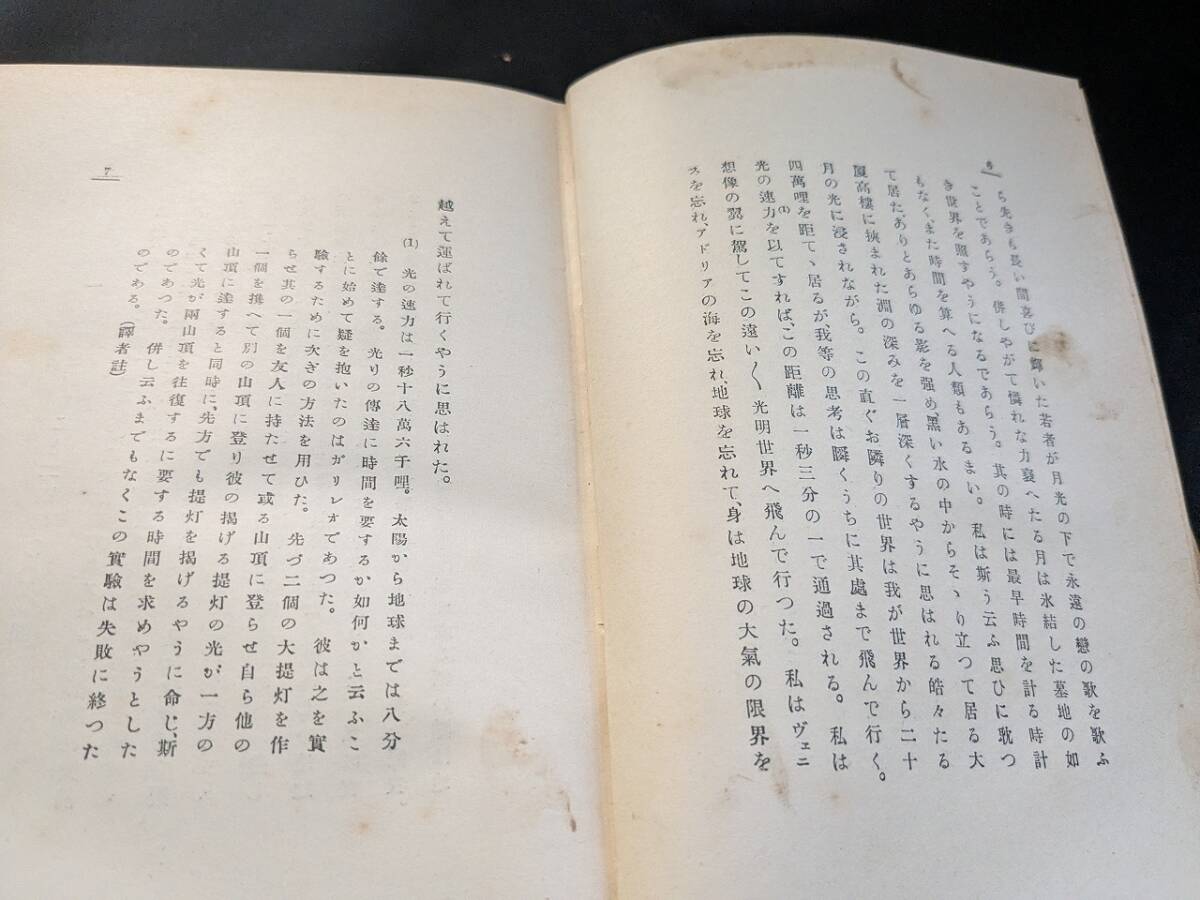 6
ら先きも長い間喜びに輝いた若者が月光の下で永遠の戀の歌を歌ふ
ことであらう。併しやがて憐れな力衰へたる月は氷結した墓地の如
き世界を照すやうになるであらう。其の時には最早時間を計る時計
もなく、また時間を算へる人類もあるまい。私は斯う云ふ思ひに耽つ
て居た、ありとあらゆる影を強め、黒い水の中からそゝり立つて居る大
厦高樓に挾まれた淵の深みを一層深くするやうに思はれる皓々たる
月の光に浸されながら。この直ぐお隣りの世界は我が世界から二十
四萬哩を距てゝ居るが、我等の思考は瞬くうちに其處まで飛んで行く。
光の速力(1)を以てすれば、この距離は一秒三分の一で通過される。私は
想像の翼に駕してこの遠い〱光明世界へ飛んで行つた。私はヴェニ
スを忘れ、アドリアの海を忘れ、地球を忘れて、身は地球の大氣の限界を
7
越えて運ばれて行くやうに思はれた。
(1) 光の速力は一秒十八萬六千哩。太陽から地球までは八分
餘で達する。光りの傳達に時間を要するか如何かと云ふこ
とに始めて疑を抱いたのはガリレオであつた。彼は之を實
驗するために次ぎの方法を用ひた。先づ二個の大提灯を作
らせ其の一個を友人に持たせて或る山頂に登らせ自ら他の
一個を携へて別の山頂に登り彼の揚げる提灯の光が一方の
山頂に達すると同時に、先方でも提灯を揚げるやうに命じ、斯
くて光が兩山頂を往復するに要する時間を求めやうとした
のであつた。併し云ふまでもなくこの實驗は失敗に終つた
のである。(譯者註)